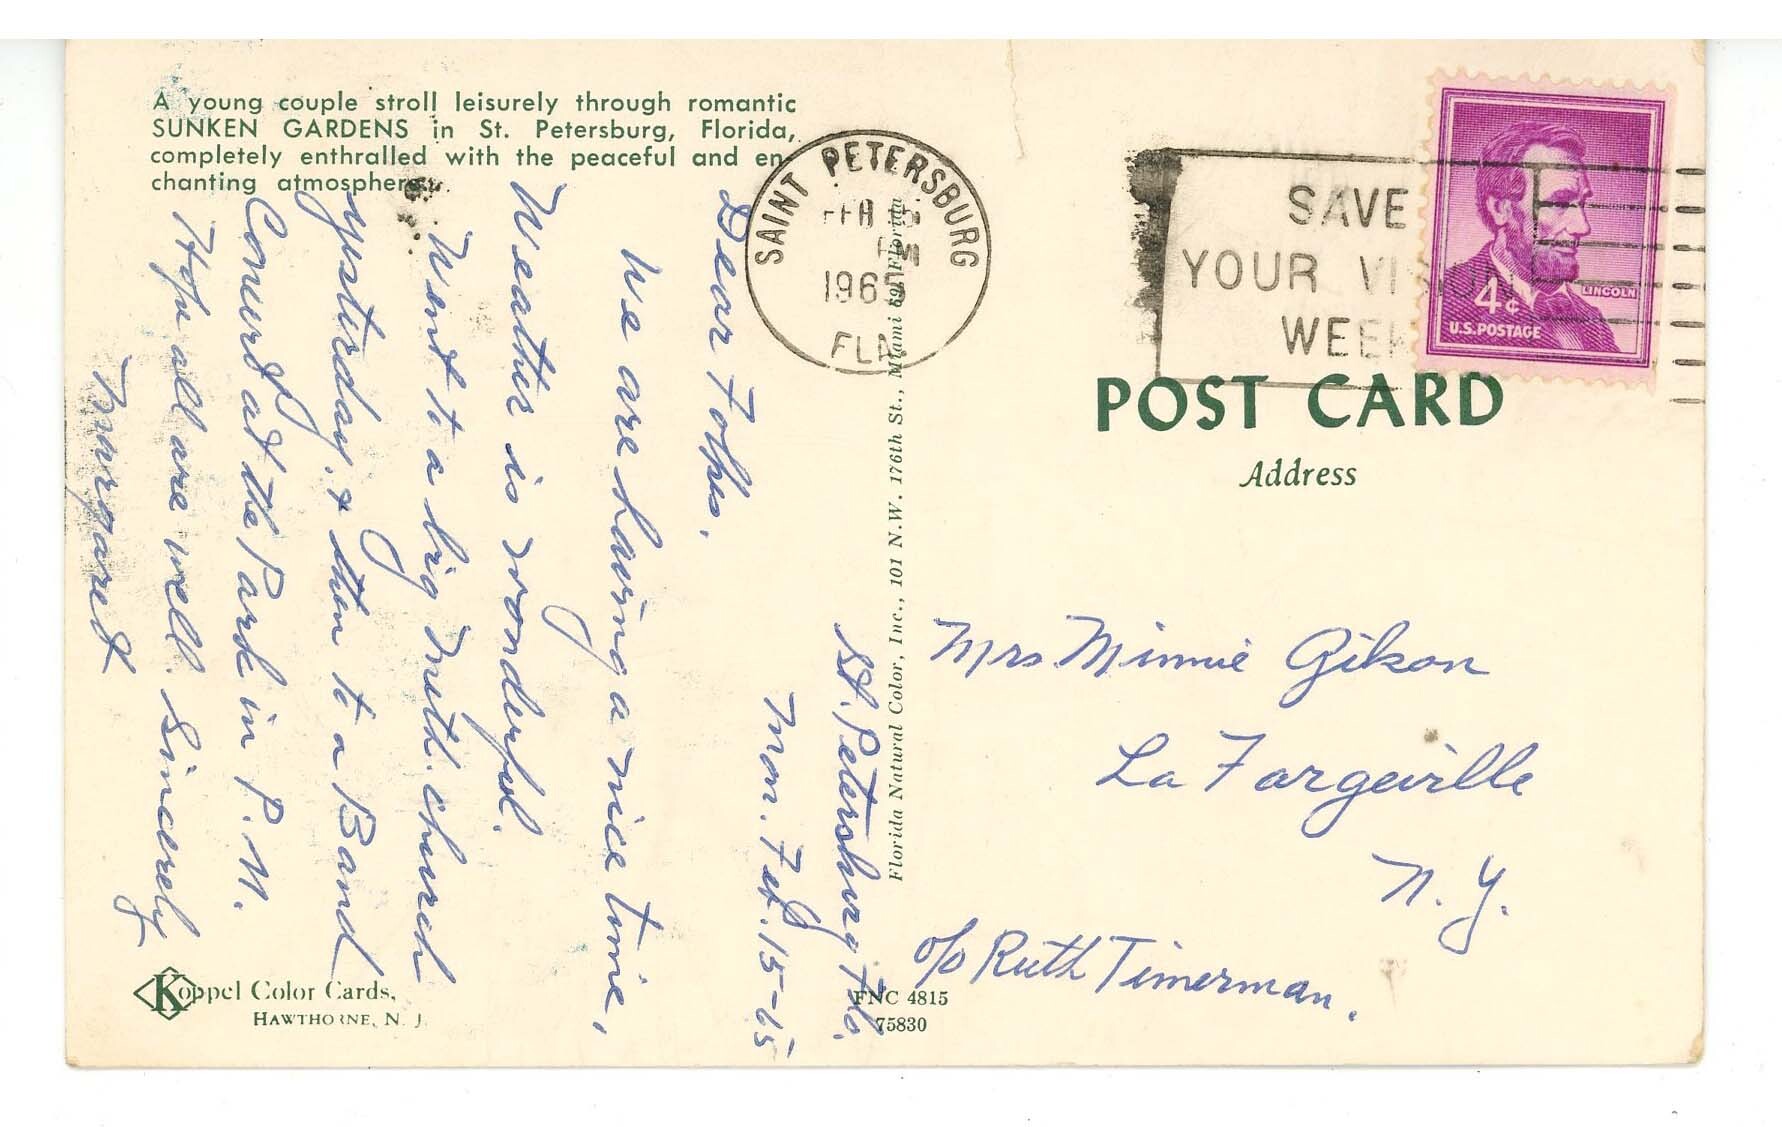 A young couple stroll leisurely through romantic
SUNKEN GARDENS in St. Petersburg, Florida,
completely enthralled with the peaceful and en-
chanting atmosphere.
St. Petersburg Flo.
Mon. Feb. 15-65
Dear Folks,
We are having a nice time,
Weather is wonderful.
Went to a big Meth. church
yesterday, & then to a Band
Concert at the Park in P.M.
Hope all are well. Sincerely
Margaret
Koppel Color Cards,
HAWTHORNE, N. J.
Florida Natural Color, Inc., 101 N.W. 176th St., Miami 69, Florida
FNC 4815
75830
SAINT PETERSBURG
FEB 15
PM
1965
FLA
SAVE
YOUR VISION
WEEK
LINCOLN
4¢
U.S. POSTAGE
POST CARD
Address
Mrs Minnie Gilson
La Fargeville
N. Y.
c/o Ruth Timerman.